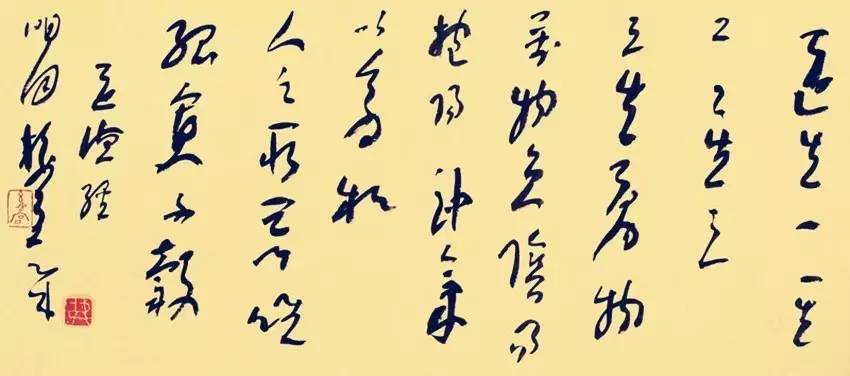 道生一一生
二二生三
三生萬物
萬物負陰而
抱陽沖氣
以為和
人之所惡唯
孤寡不穀
道德經